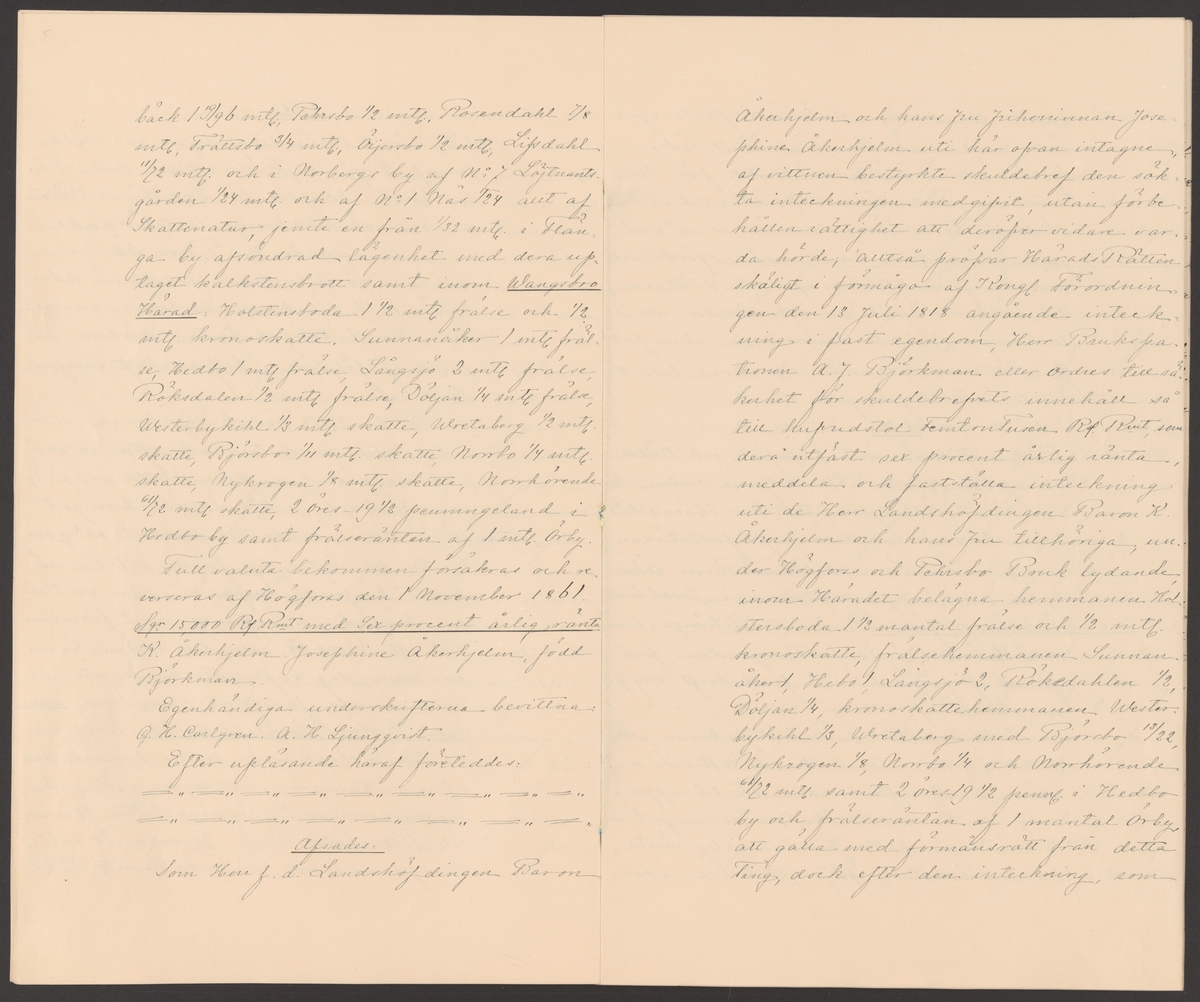 bäck 1 19/96 mtl, Pehrsbo 1/2 mtl, Rosendahl 7/8
mtl, Trättsbo 3/4 mtl, Örjersbo 1/2 mtl, Lifsdahl
11/72 mtl. och i Norbergs by af No 7 Löjtnants-
gården 1/24 mtl. och af No 1 Näs 1/24 allt af
Skattenatur, jemte en från 1/32 mtl. i Flän-
ga by afsöndrad lägenhet med dera up-
taget kalkstensbrott samt inom Wangsbro
Härad: Holstensboda 1 1/2 mtl frälse och 1/2
mtl kronoskatte, Sunnanåker 1 mtl fräl-
se, Hedbo 1 mtl frälse, Långsjö 2 mtl frälse,
Röksdalen 1/2 mtl frälse, Döljan 1/4 mtl frälse,
Westerbykihl 1/3 mtl skatte, Wretaberg 1/2 mtl.
skatte, Björsbo 1/11 mtl. skatte, Norrbo 1/4 mtl.
skatte, Nykrogen 1/8 mtl skatte, Norrhörende
61/72 mtl skatte, 2 öres 19 1/2 penningeland i
Hedbo by samt frälseräntan af 1 mtl. Örby.
Full valuta bekommen försäkras och re-
verseras af Högforss den 1 November 1861.
Sgr 15,000 Rd Rmt med Sex procent årlig ränta
K. Åkerhjelm Josephine Åkerhjelm, född
Björkman.
Egenhändiga underskrifterna bevittna:
G. H. Carlgren. A. H. Ljungqvist.
Efter upläsande häraf företeddes:
Afsades:
Som Herr f. d. Landshöfdingen Baron
Åkerhjelm och hans fru friherrinnan Jose-
phine Åkerhjelm uti här ofvan intagne,
af vittnen bestyrkte skuldebref den sök-
ta inteckningen medgifvit, utan förbe-
hållen rättighet att deröfver vidare var-
da hörde; alltså pröfvar HäradsRätten
skäligt i förmåga af Kongl Förordnin-
gen den 13 Juli 1818 angående inteck-
ning i fast egendom, Herr Brukspa-
tronen A. J. Björkman eller ordres till sä-
kerhet för skuldebrefvets innehåll så
till hufvudstol Femtontusen Rd Rmt, som
derå utfäst sex procent årlig ränta,
meddela och fastställa inteckning
uti de Herr Landshöfdingen Baron K.
Åkerhjelm och hans fru tillhöriga, un-
der Högforss och Pehrsbo Bruk lydande,
inom Häradet belägna hemmanen Hol-
stensboda 1 1/2 mantal frälse och 1/2 mtl.
kronoskatte, frälsehemmanen Sunnan-
åker 1, Hebo 1, Långsjö 2, Röksdahlen 1/2,
Döljan 1/4, kronoskattehemmanen Wester-
bykihl 1/3, Wretaberg med Björsbo 13/22,
Nykrogen 1/8, Norrbo 1/4 och Norrhörende
61/72 mtl. samt 2 öres 19 1/2 penl. i Hedbo
by och frälseräntan af 1 mantal Örby,
att gälla med förmånsrätt från detta
Ting, dock efter den inteckning, som